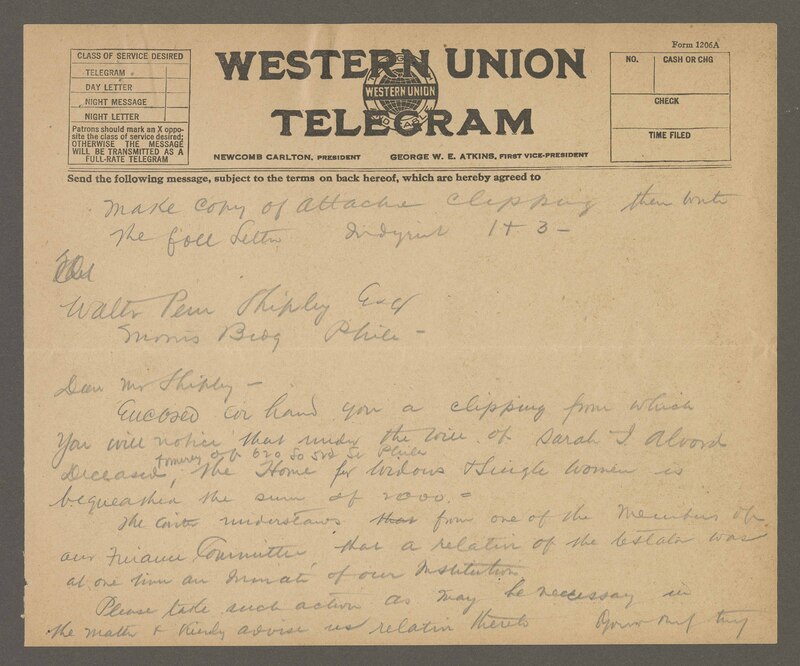 Form 1206A
CLASS OF SERVICE DESIRED
TELEGRAM
DAY LETTER
NIGHT MESSAGE
NIGHT LETTER
Patrons should mark an X oppo-
site the class of service desired;
OTHERWISE THE MESSAGE
WILL BE TRANSMITTED AS A
FULL-RATE TELEGRAM
WESTERN UNION
WESTERN UNION
TELEGRAM
NEWCOMB CARLTON, PRESIDENT GEORGE W. E. ATKINS, FIRST VICE-PRESIDENT
NO. CASH OR CHG
CHECK
TIME FILED
Send the following message, subject to the terms on back hereof, which are hereby agreed to
Make copy of attache clipping then write
the foll letter 1 + 3 -
Walter Penn Shipley Esq
Morris Bldg Phila -
Dear Mr Shipley -
Enclosed we hand you a clipping from which
you will notice that under the will of Sarah J. Alvord
formerly of 620 So 3rd St Phila
Deceased, the Home for Widows & Single Women is
bequeathed the sum of 2000. =
The writer understands that from one of the members of
our Finance Committee that a relative of the testator was
at one time an Inmate of our Institution
Please take such action as may be necessary in
the matter & kindly advise us relative thereto Yours truly